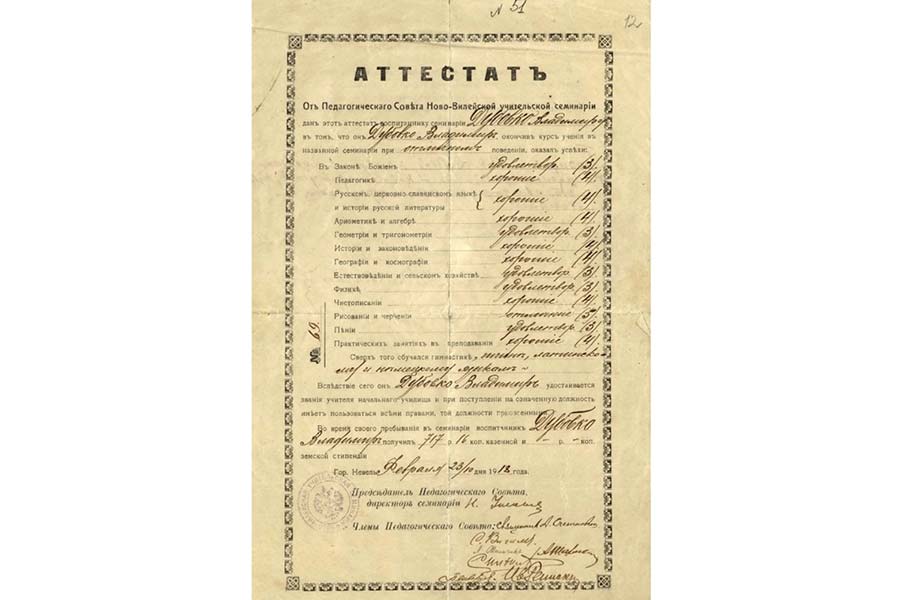 N 51
12
АТТЕСТАТЪ
Отъ Педагогическаго Совѣта Ново-Вилейской учительской семинаріи
данъ этотъ аттестатъ воспитаннику семинаріи Дубовко Владимиру
въ томъ, что онъ Дубовко Владимиръ окончивъ курсъ ученія въ
названной семинаріи при отличномъ поведеніи, оказалъ успѣхи:
Въ Законѣ Божіемъ удовлетвор. (3).
Педагогикѣ хорошіе (4).
Русскомъ, церковно-славянскомъ языкѣ
и исторіи русской литературы } хорошіе (4).
Ариѳметикѣ и алгебрѣ хорошіе (4).
Геометріи и тригонометріи удовлетвор. (3).
Исторіи и законовѣдѣніи хорошіе (4).
Географіи и космографіи хорошіе (4).
Естествовѣдѣніи и сельскомъ хозяйствѣ удовлетвор. (3).
Физикѣ удовлетвор. (3).
Чистописаніи хорошіе (4).
Рисованіи и черченіи отличные (5).
Пѣніи удовлетвор. (3).
Практическихъ занятіяхъ въ преподаваніи хорошіе (4).
№ 69.
Сверхъ того обучался гимнастикѣ, пѣнію, латинско-
му и нѣмецкому языкамъ
Вслѣдствіе сего онъ Дубовко Владимиръ удостаивается
званія учителя начальнаго училища и при поступленіи на означенную должность
имѣетъ пользоваться всѣми правами, той должности присвоенными.
Во время своего пребыванія въ семинаріи воспитанникъ Дубовко
Владимиръ получилъ 717 р. 16 коп. казенной и — р. — коп.
земской стипендіи
Гор. Невель Февраля 23/10 дня 1918 года.
Предсѣдатель Педагогическаго Совѣта,
директоръ семинаріи
Члены Педагогическаго Совѣта: Священникъ